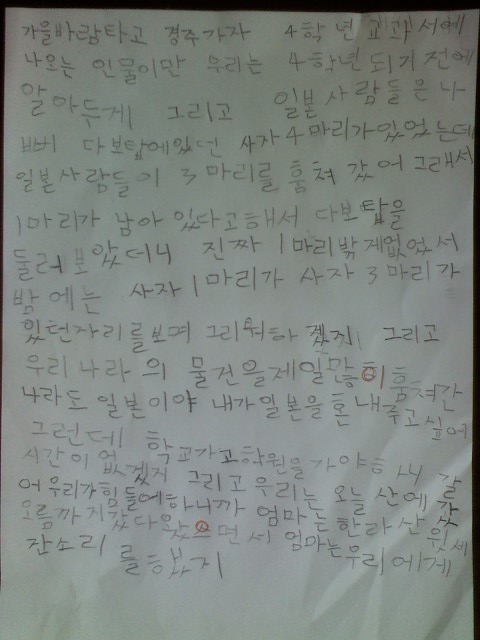 가을바람타고 경주가자 4학년교과서에
나오는 인물이만 우리는 4학년되기전에
알아두게 그리고 일본사람들은 나
뻐 다보탑에있던 사자4마리가있었는데
일본사람들이 3마리를 훔쳐갔어 그래서
1마리가 남아있다고해서 다보탑을
둘러보았더니 진짜 1마리밖게없었서
밤에는 사자1마리가 사자3마리가
있던자리를보며 그리워하겠지 그리고
우리나라의 물건을제일많히훔쳐간
나라도 일본이야 내가일본을혼내주고싶어
그런데 학교가고학원을가야하니
시간이없겠지 그리고우리는 오늘 산에 갈
어우리가힘들에하니까 엄마는한라산윗세
오름까지갔다왔으면서 엄마는우리에게
잔소리를했지